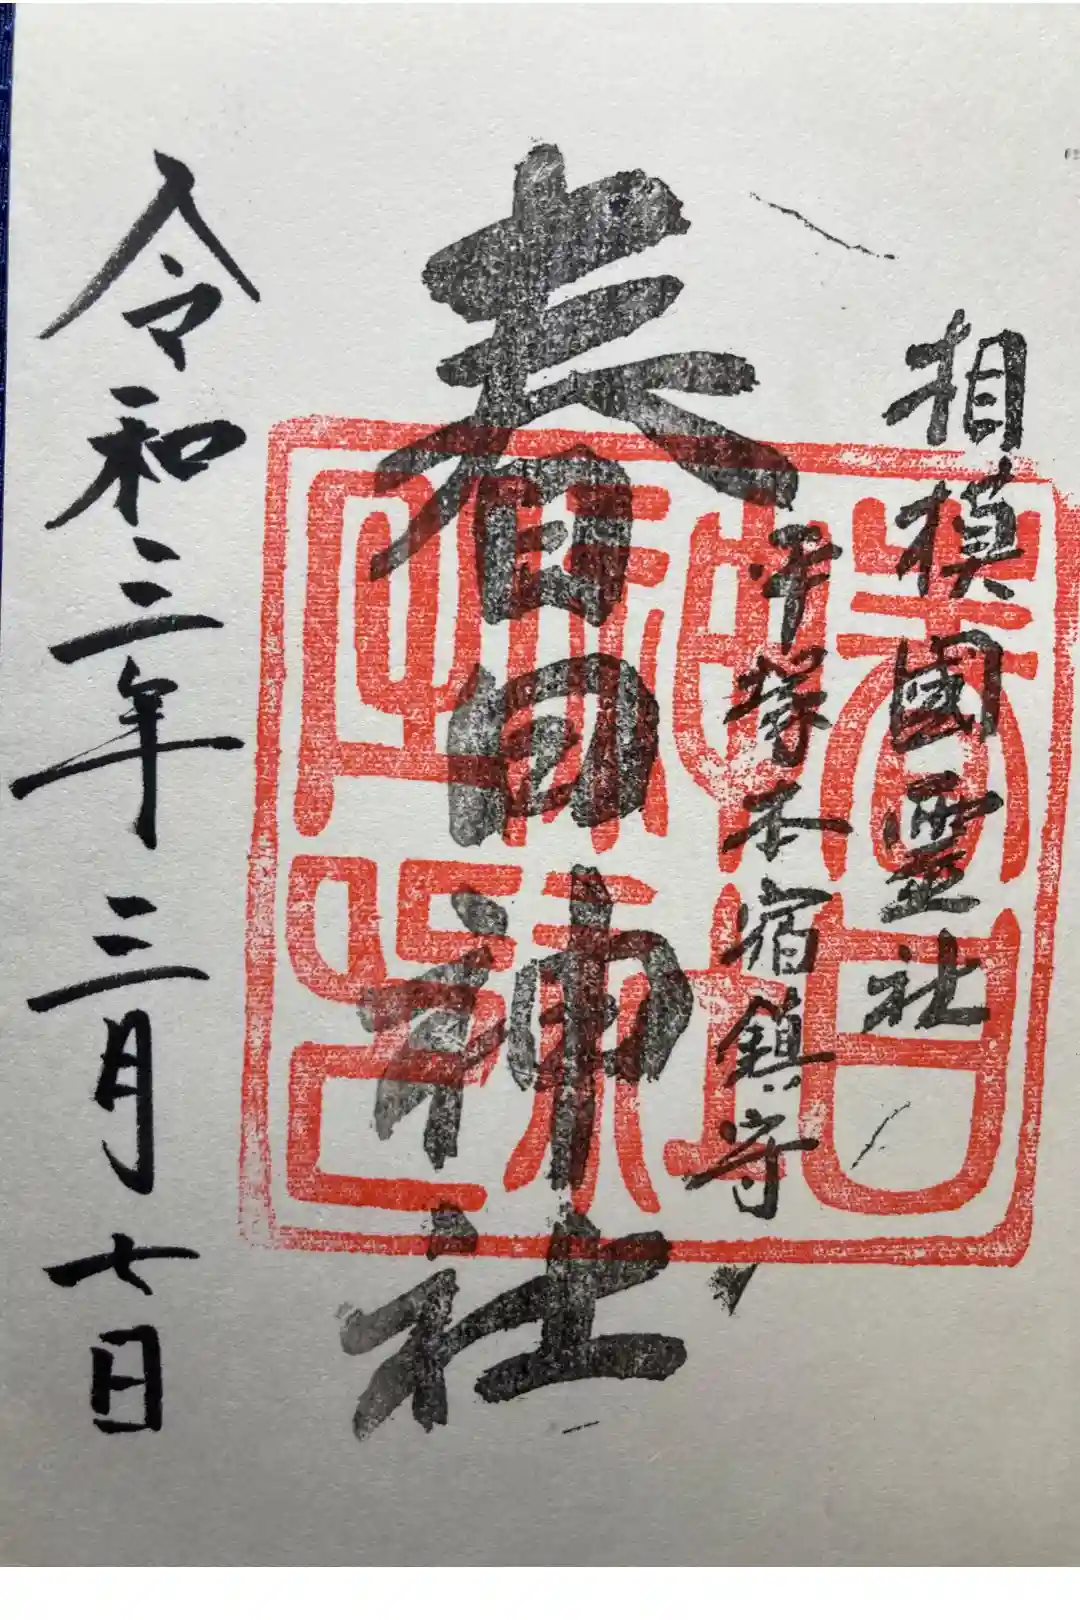 相模國霊社
平塚本宿鎮守
春日神社
令和三年三月七日